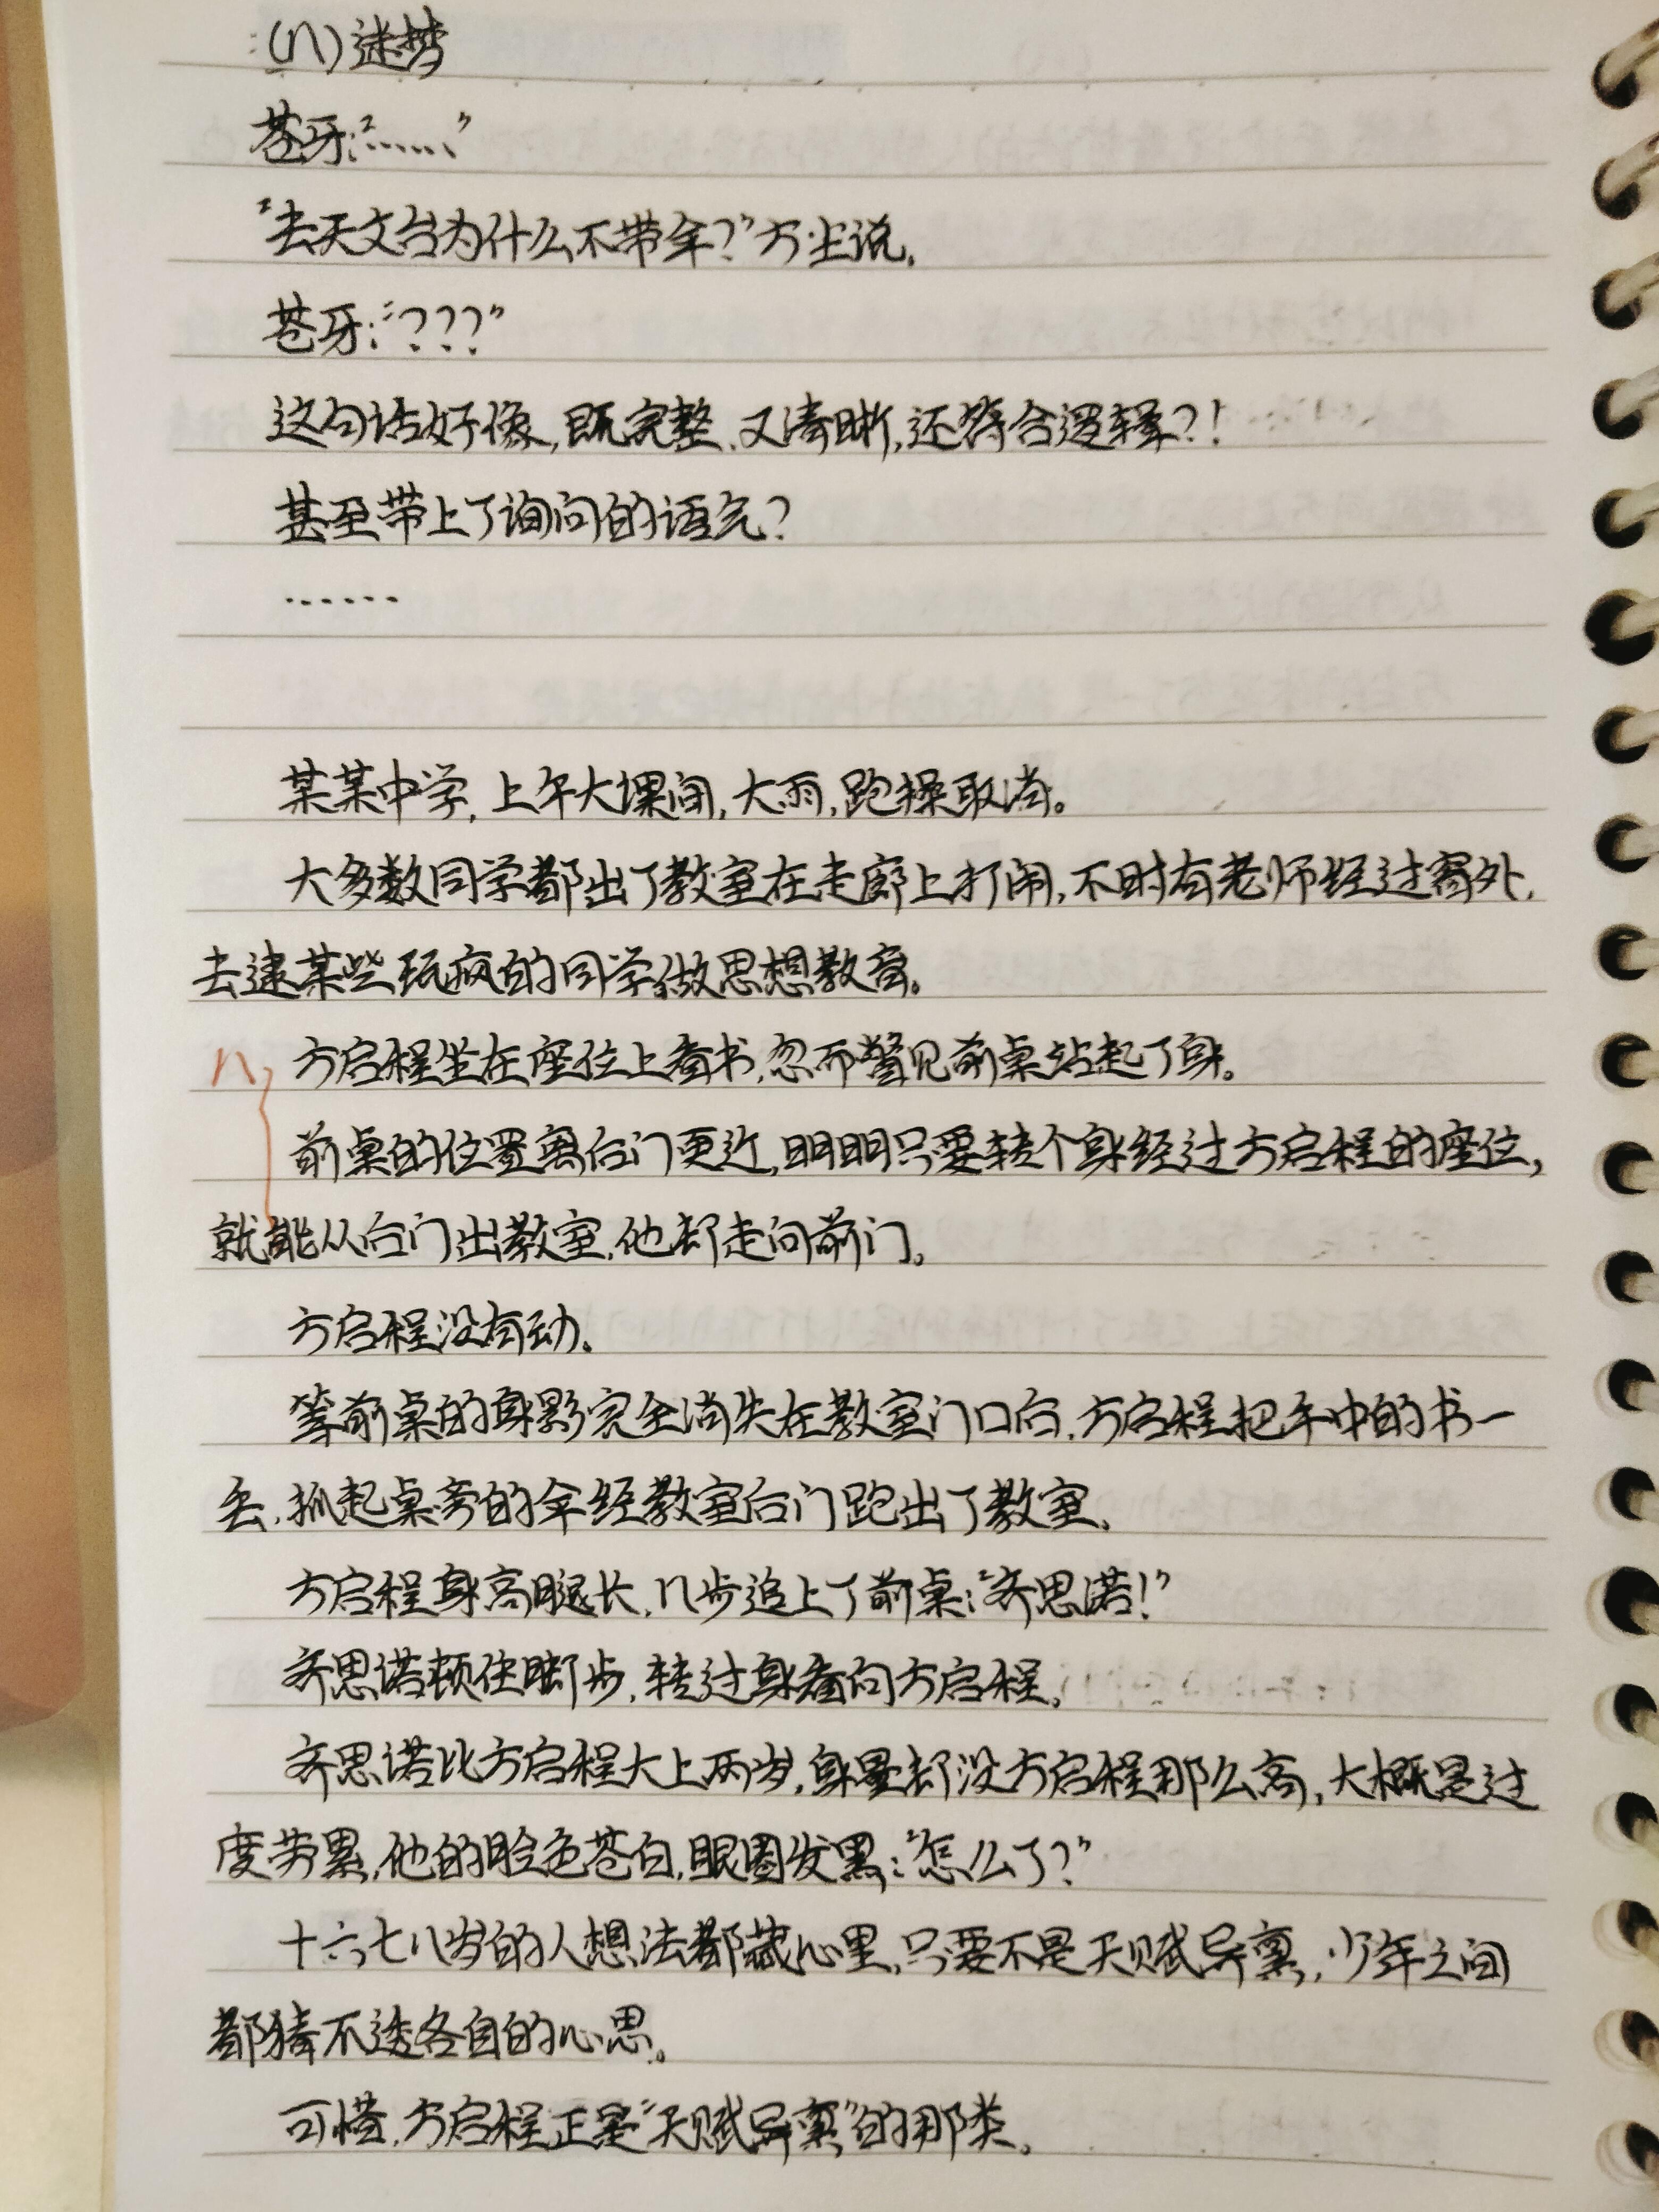 (八)迷梦
苍牙:“……”
“去天文台为什么不带伞?”方尘说。
苍牙:“???”
这句话好像,既完整、又清晰,还符合逻辑?!
甚至带上了询问的语气?
……
某某中学,上午大课间,大雨,跑操取消。
大多数同学都出了教室在走廊上打闹,不时有老师经过窗外,
去逮某些玩疯的同学做思想教育。
方启程坐在座位上看书,忽而瞥见前桌站起了身。
前桌的位置离后门更近,明明只要转个身经过方启程的座位,
就能从后门出教室,他却走向前门。
方启程没有动。
等前桌的身影完全消失在教室门口后,方启程把手中的书一
丢,抓起桌旁的伞经教室后门跑出了教室。
方启程身高腿长,几步追上了前桌:“齐思诺!”
齐思诺顿住脚步,转过身看向方启程。
齐思诺比方启程大上两岁,身量却没方启程那么高,大概是过
度劳累,他的脸色苍白,眼圈发黑:“怎么了?”
十六七八岁的人想法都藏心里,只要不是天赋异禀,少年之间
都猜不透各自的心思。
可惜,方启程正是“天赋异禀”的那类。